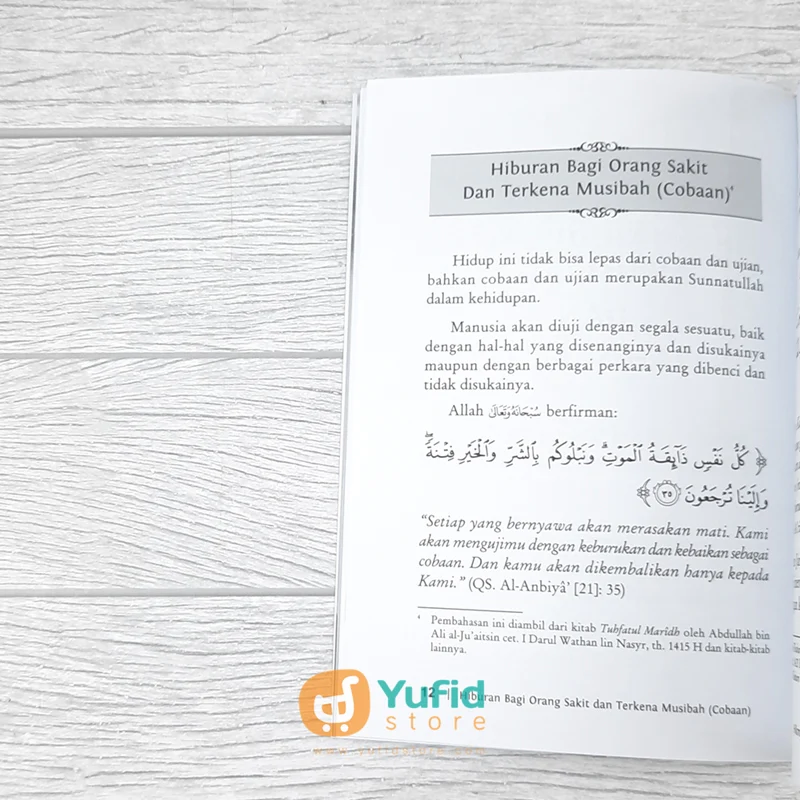 Hiburan Bagi Orang Sakit
Dan Terkena Musibah (Cobaan)⁴
Hidup ini tidak bisa lepas dari cobaan dan ujian,
bahkan cobaan dan ujian merupakan Sunnatullah
dalam kehidupan.
Manusia akan diuji dengan segala sesuatu, baik
dengan hal-hal yang disenanginya dan disukainya
maupun dengan berbagai perkara yang dibenci dan
tidak disukainya.
Allah سُبْحَانَهُ وَتَعَالَى berfirman:
﴿ كُلُّ نَفْسٍ ذَآئِقَةُ ٱلْمَوْتِ ۗ وَنَبْلُوكُم بِٱلشَّرِّ وَٱلْخَيْرِ فِتْنَةً ۖ
وَإِلَيْنَا تُرْجَعُونَ ٣٥ ﴾
“Setiap yang bernyawa akan merasakan mati. Kami
akan mengujimu dengan keburukan dan kebaikan sebagai
cobaan. Dan kamu akan dikembalikan hanya kepada
Kami.” (QS. Al-Anbiyâ’ [21]: 35)
⁴ Pembahasan ini diambil dari kitab Tuhfatul Marîdh oleh Abdullah bin
Ali al-Ju’aitsin cet. I Darul Wathan lin Nasyr, th. 1415 H dan kitab-kitab
lainnya.
12 | Hiburan Bagi Orang Sakit dan Terkena Musibah (Cobaan)
Yufid
store